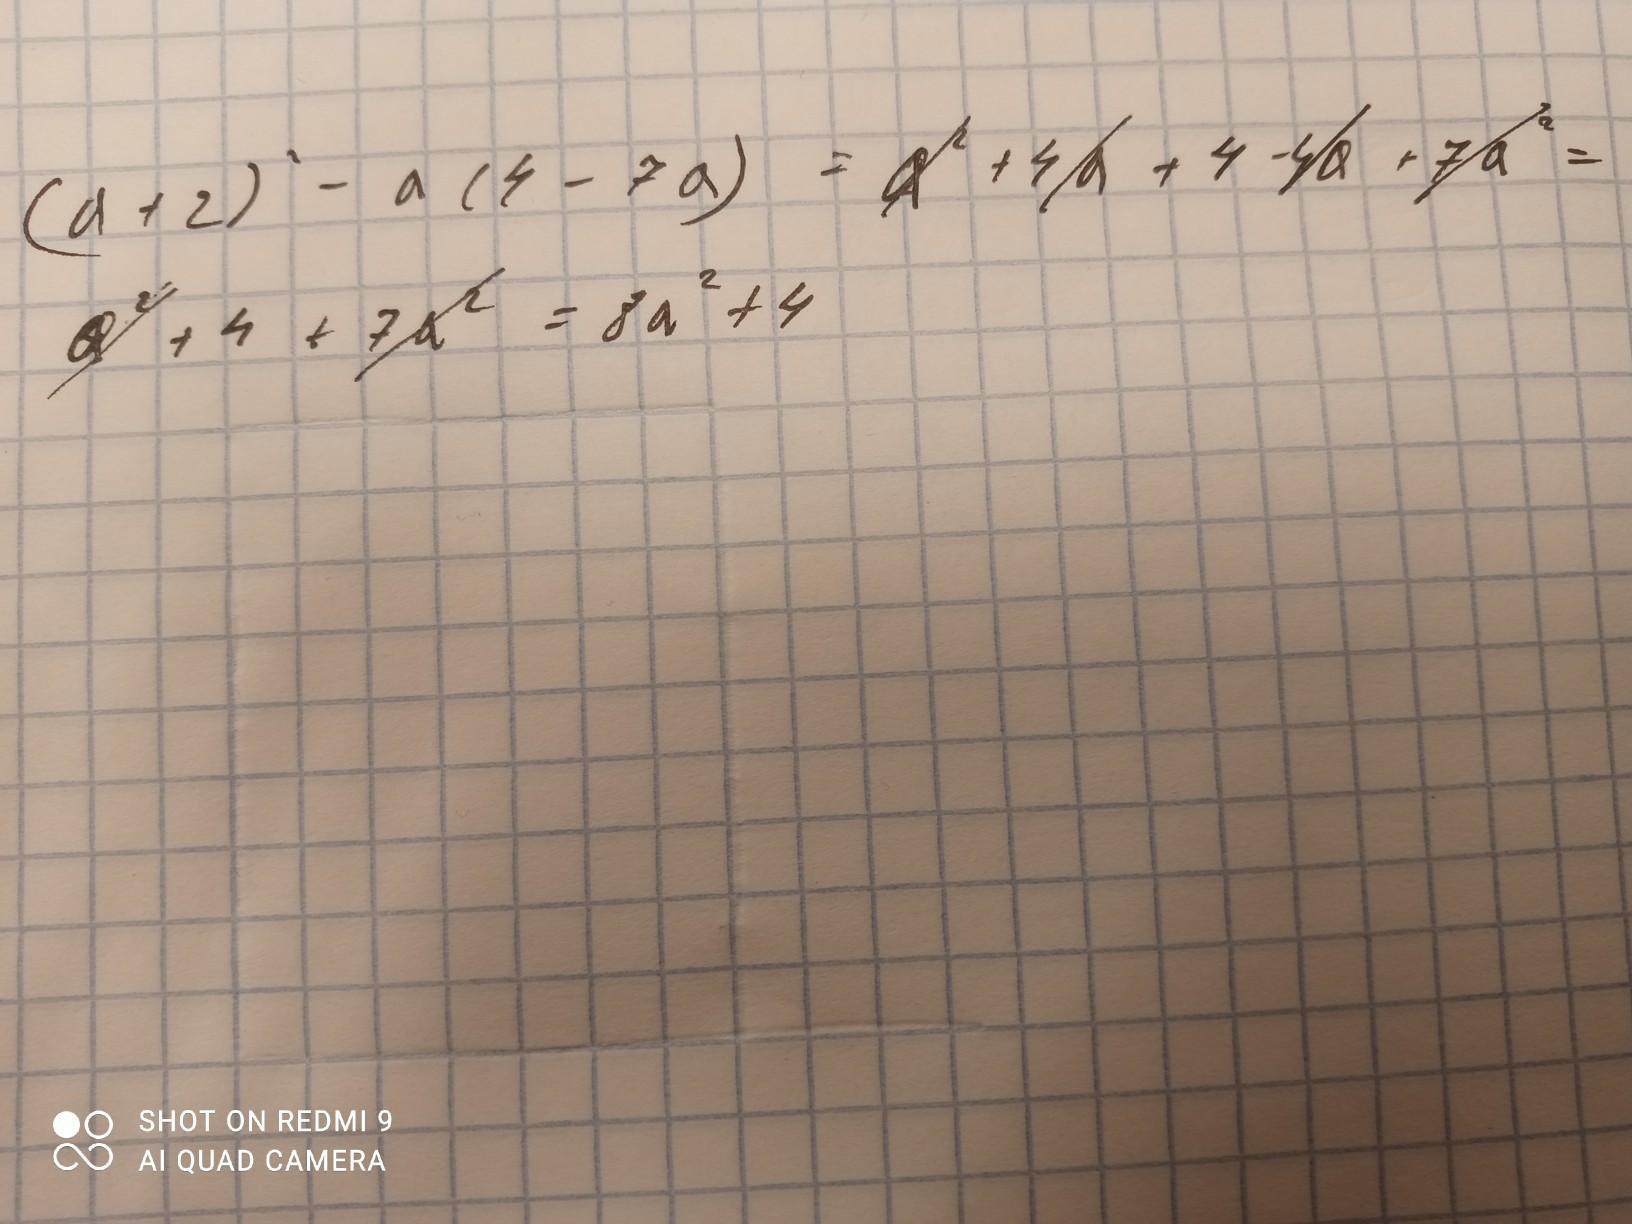 (a+2)² - a(4 - 7a) = a² + 4a + 4 - 4a + 7a² =
a² + 4 + 7a² = 8a² + 4
SHOT ON REDMI 9
AI QUAD CAMERA